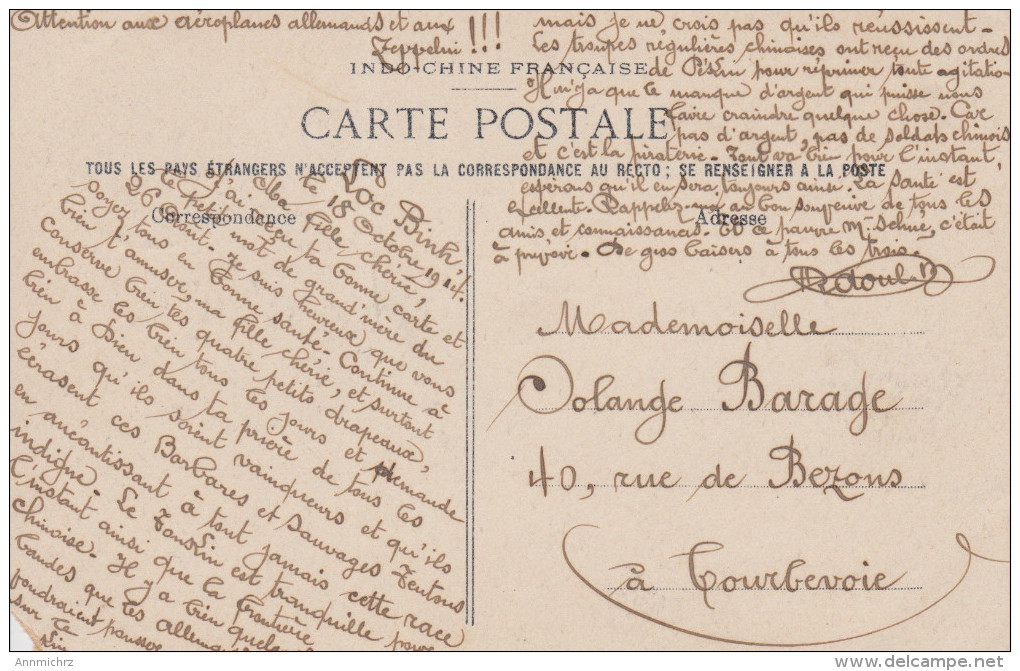 Attention aux aéroplanes allemands et aux
Zeppelin !!!
INDO-CHINE FRANÇAISE
CARTE POSTALE
TOUS LES PAYS ÉTRANGERS N'ACCEPTENT PAS LA CORRESPONDANCE AU RECTO; SE RENSEIGNER A LA POSTE
Correspondance
Adresse
Loc Binh,
le 18 Octobre 1914.
Ma fille chérie,
J'ai reçu ta bonne carte et
le petit mot de grand'mère du
26 Août. Je suis heureux que vous
soyez tous en bonne santé. Continue à
bien t'amuser, ma fille chérie, et surtout
conserve bien tes quatre petits drapeaux,
embrasse les bien tous les jours et demande
bien à Dieu dans ta prière de tous les
jours qu'ils soient vainqueurs et qu'ils
écrasent ces Barbares et Sauvages Teutons
en anéantissant à tout jamais cette race
indigne. Le Tonkin est tranquille pour
l'instant ainsi que la frontière
chinoise. Il y a bien quelques
bandes que les allemands
voudraient pousser
sur le
mais je ne crois pas qu'ils réussissent.
Les troupes régulières chinoises ont reçu des ordres
de Pékin pour réprimer toute agitation
Il n'y a que le manque d'argent qui puisse nous
faire craindre quelque chose. Car
pas d'argent, pas de soldats chinois
et c'est la piraterie. Tout va bien pour l'instant,
espérons qu'il en sera toujours ainsi. La santé est
excellente. Rappelez-moi au bon souvenir de tous les
amis et connaissances. Et ce pauvre Mr. Sehné, c'était
à prévoir. De gros baisers à tous les trois.
Mademoiselle
Solange Barage
40, rue de Bezons
à Courbevoie
Annmichrz
www.delcampe.net